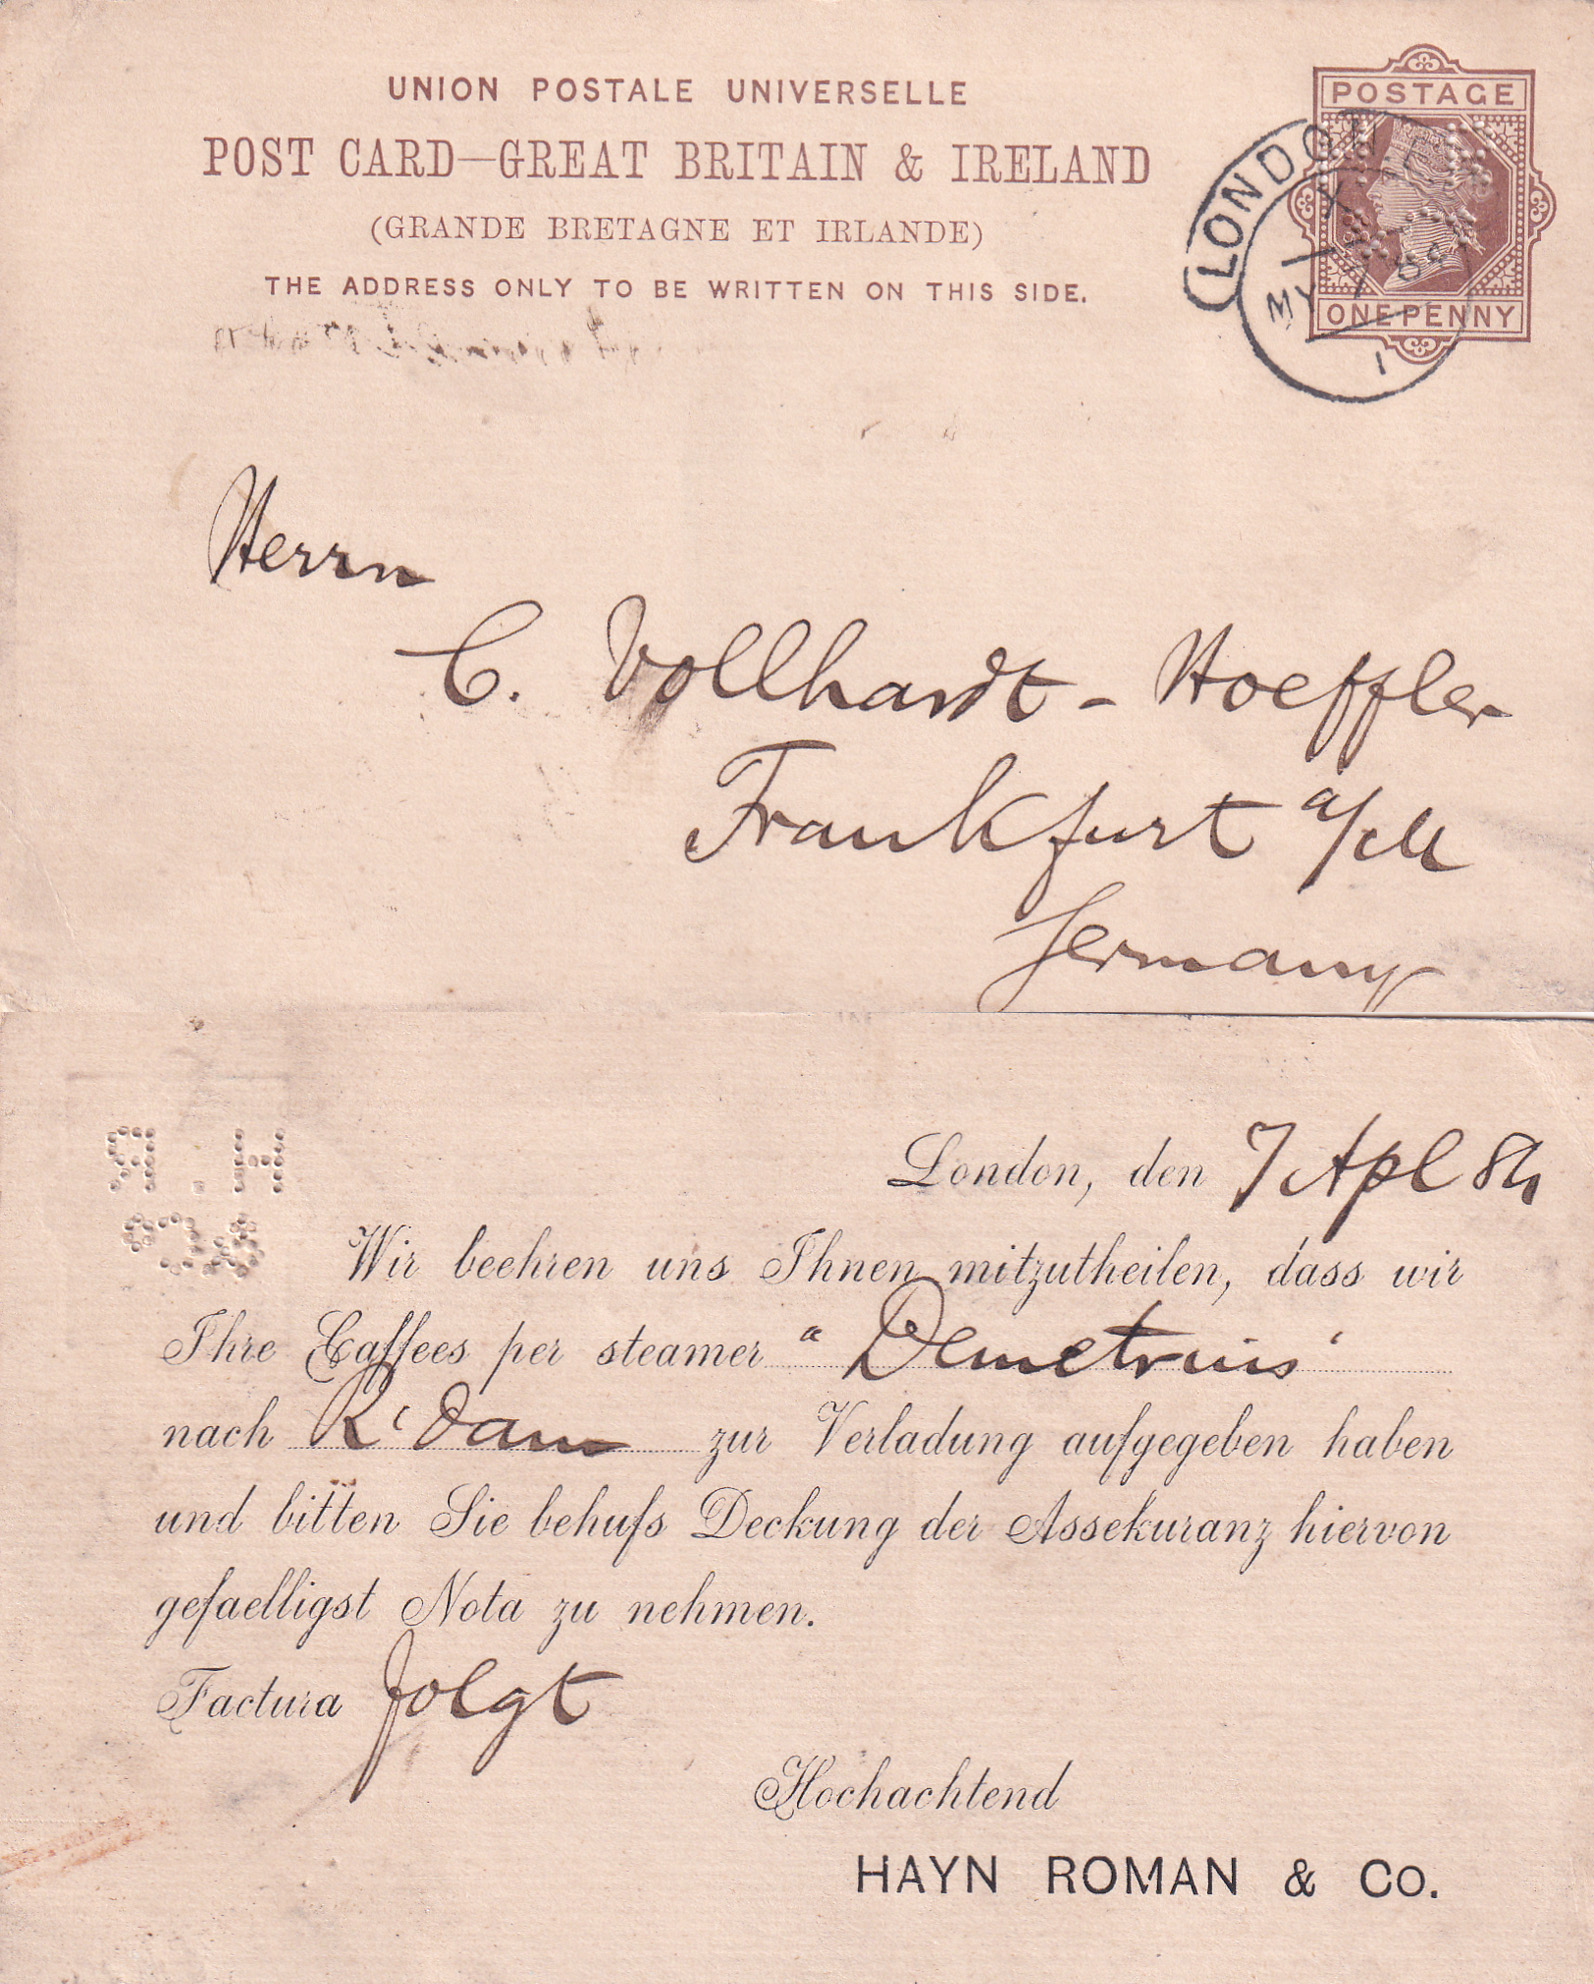 UNION POSTALE UNIVERSELLE
POST CARD—GREAT BRITAIN & IRELAND
(GRANDE BRETAGNE ET IRLANDE)
THE ADDRESS ONLY TO BE WRITTEN ON THIS SIDE.
POSTAGE
ONE PENNY
LONDON
X
MY 1
84
1
Herrn
C. Vollhardt - Hoeffler
Frankfurt a/M
Germany
H.R
&Co
London, den 7 Apl 84
Wir beehren uns Ihnen mitzutheilen, dass wir
Ihre Caffees per steamer "Demetrius"
nach R'dam zur Verladung aufgegeben haben
und bitten Sie behufs Deckung der Assekuranz hiervon
gefaelligst Nota zu nehmen.
Factura folgt
Hochachtend
HAYN ROMAN & Co.